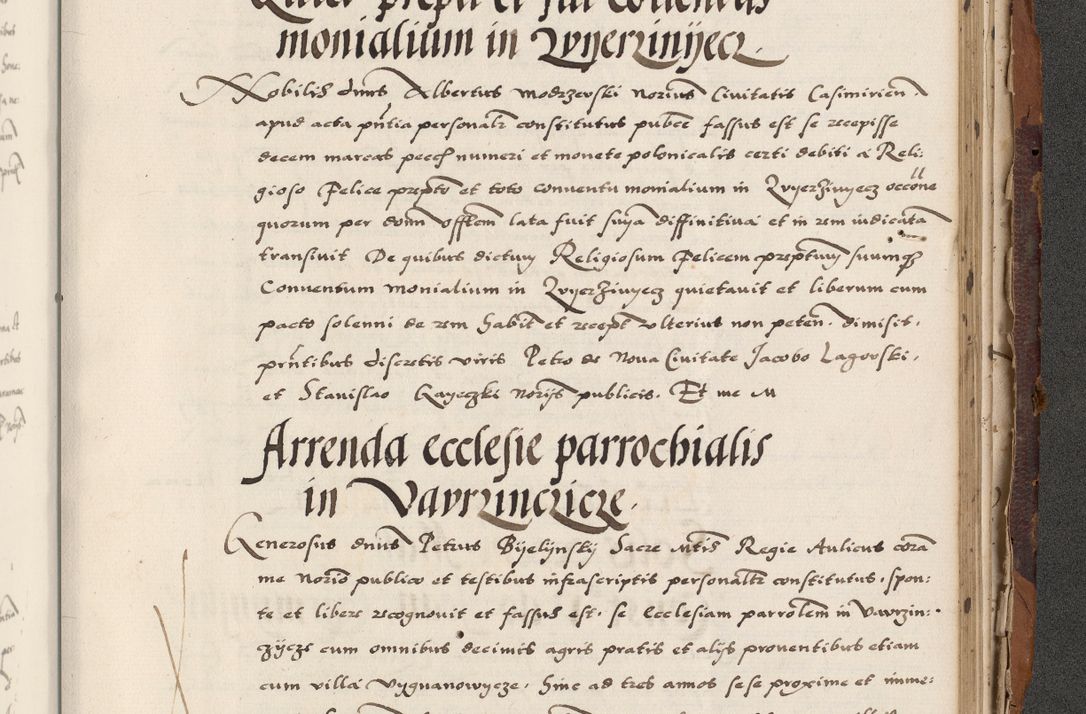 monialium in Zvyerzinyecz.
Nobilis dnus Albertus Modrzevski Norius Civitatis Casimirien.
apud acta pntia personalr constitutus pubce fassus est se recepisse
decem marcas pecch numeri et monete polonicalis certi debiti a Reli:
gioso Felice prepto et toto conventu monialium in Zvyerzinyecz occone
quorum per donn Offtem lata fuit snya diffinitiva et in rem iudicata
transivit De quibus dictum Religiosum Felicem preptum suumqz
Conventum Monialium in Zvyerzinyecz quietavit et liberum cum
pacto solenni de rem habit et recept ulterius non peten. dimisit.
prntibus discretis viris Petro de Nova Civitate Jacobo Lagovski.
et Stanislao Kayeczki Norijs publicis. Et me M
Arrenda ecclesie parrochialis
in Vavrzinczicze.
Generosus dnus Petrus Byelijnskij Sacre Mtis Regie Aulicus cora
me Norio publico et testibus infrascriptis personaltr constitutus. spon:
te et libere recognovit et fassus est. se Ecclesiam parrolem in Vavrzin:
czycze cum omnibus decimis agris pratis et alijs proventibus etiam
cum villa Vygnanowycze. hinc ad tres annos sese proxime et imme: